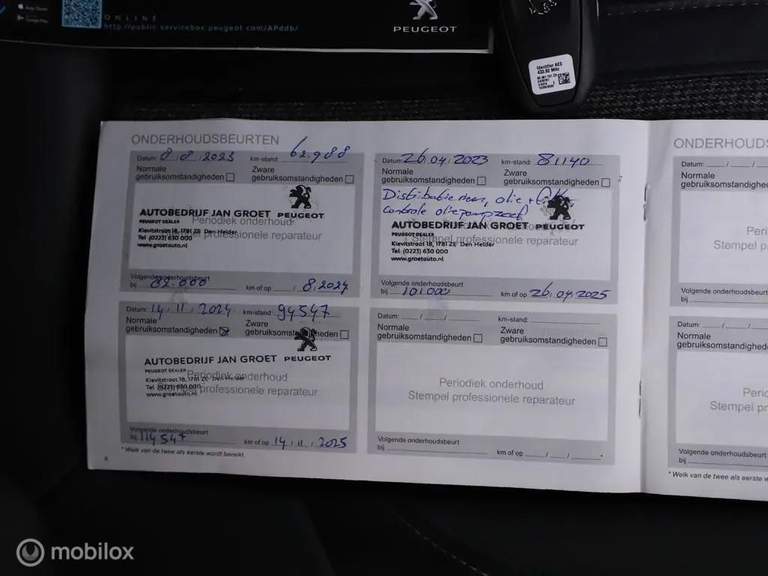 ONLINE
http://public.servicebox.peugeot.com/APddb/
PEUGEOT
ONDERHOUDSBEURTEN
Datum: 8.8.2023 km-stand: 62.988
Normale gebruiksomstandigheden
Zware gebruiksomstandigheden
PEUGEOT
AUTOBEDRIJF JAN GROET
PEUGEOT DEALER
Periodiek onderhoud
Kievitstraat 18, 1781 ZE Den Helder
Stempel professionele reparateur
Tel. (0223) 630 000
www.groetauto.nl
Volgende onderhoudsbeurt
bij 82.000 km of op 8.2024
Datum: 26.04.2023 km-stand: 81140
Normale gebruiksomstandigheden
Zware gebruiksomstandigheden
Distributieriem, olie +
controle oliepompzeef
AUTOBEDRIJF JAN GROET PEUGEOT
PEUGEOT DEALER
Periodiek onderhoud
Kievitstraat 18, 1781 ZE Den Helder
Stempel professionele reparateur
Tel. (0223) 630 000
www.groetauto.nl
Volgende onderhoudsbeurt
bij 101.000 km of op 26.04.2025
Datum: 14.11.2024 km-stand: 94547
Normale gebruiksomstandigheden
Zware gebruiksomstandigheden
AUTOBEDRIJF JAN GROET PEUGEOT
PEUGEOT DEALER
Periodiek onderhoud
Kievitstraat 18, 1781 ZE Den Helder
Stempel professionele reparateur
Tel. (0223) 630 000
www.groetauto.nl
Volgende onderhoudsbeurt
bij 114547 km of op 14.11.2025
* Welk van de twee als eerste wordt bereikt.
Datum: / / km-stand:
Normale gebruiksomstandigheden
Zware gebruiksomstandigheden
Periodiek onderhoud
Stempel professionele reparateur
Volgende onderhoudsbeurt
bij km of op / / *
ONDERHOUDSB
Datum: / /
Normale
gebruiksomstandighe
Volgende onderhoudsbeurt
bij
Datum: / /
Normale
gebruiksomstandighe
Volgende onderhoudsbeurt
bij
* Welk van de twee als eerste w
mobilox